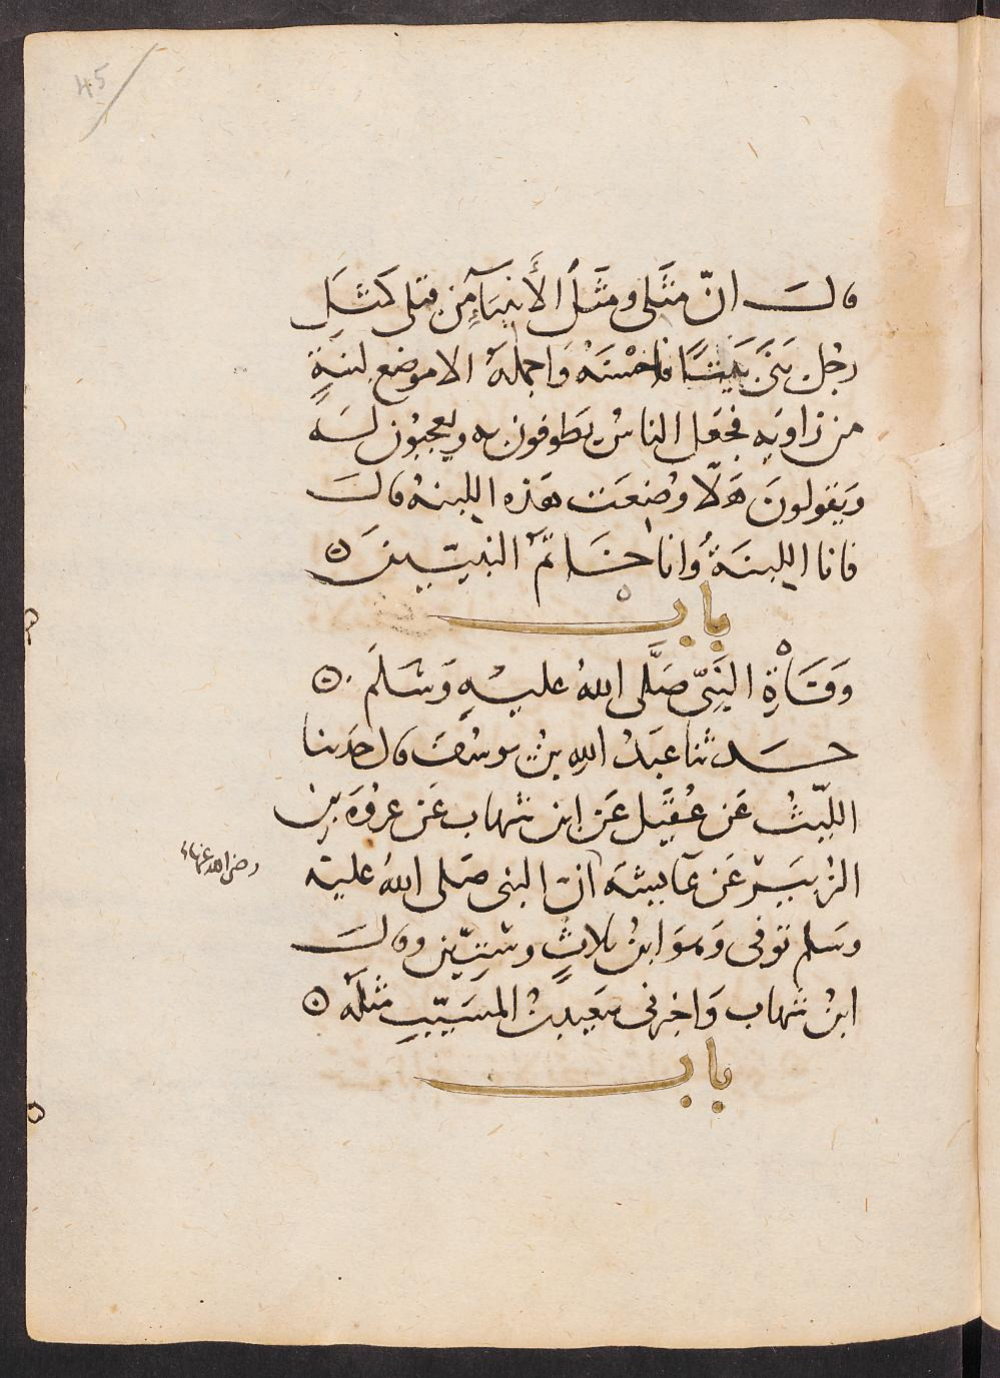 45
قال انّ مثَلى ومثَلُ الأَنبيَآءِ مِن قبلى كمَثَلِ
رجُلٍ بَنَى بَيتًا فاحْسَنَهُ وَاجملَهُ الا موضع لبنةٍ
من زاويه فجعَل الناسُ يَطوفون به ويعجبُون لَه
وَيَقولونَ هَلّا وُضِعَت هَذه اللبنهُ قال
فانا اللبنَةُ وانا خَاتمُ النبيّينَ ه
باب
وَفَاةِ النَبِىّ صَلَّى اللهُ عليهِ وَسَلَم ه
حدثنا عبَدُ اللهِ بنُ يوسُفَ قال حَدثنا
اللّيثُ عَن عُقَيل عَن ابن شهاب عَن عروَه بن
الزُبَيْر عَن عَآيشَه انّ النبى صَلى اللهُ عليه
رضى الله عنهاء
وسَلم توفى وَهوَ ابنُ ثلاثٍ وسِتّين وقال
ابنُ شهاب وَاخبرنى سَعيد بنُ المسَيّبِ مثلَه ه
باب